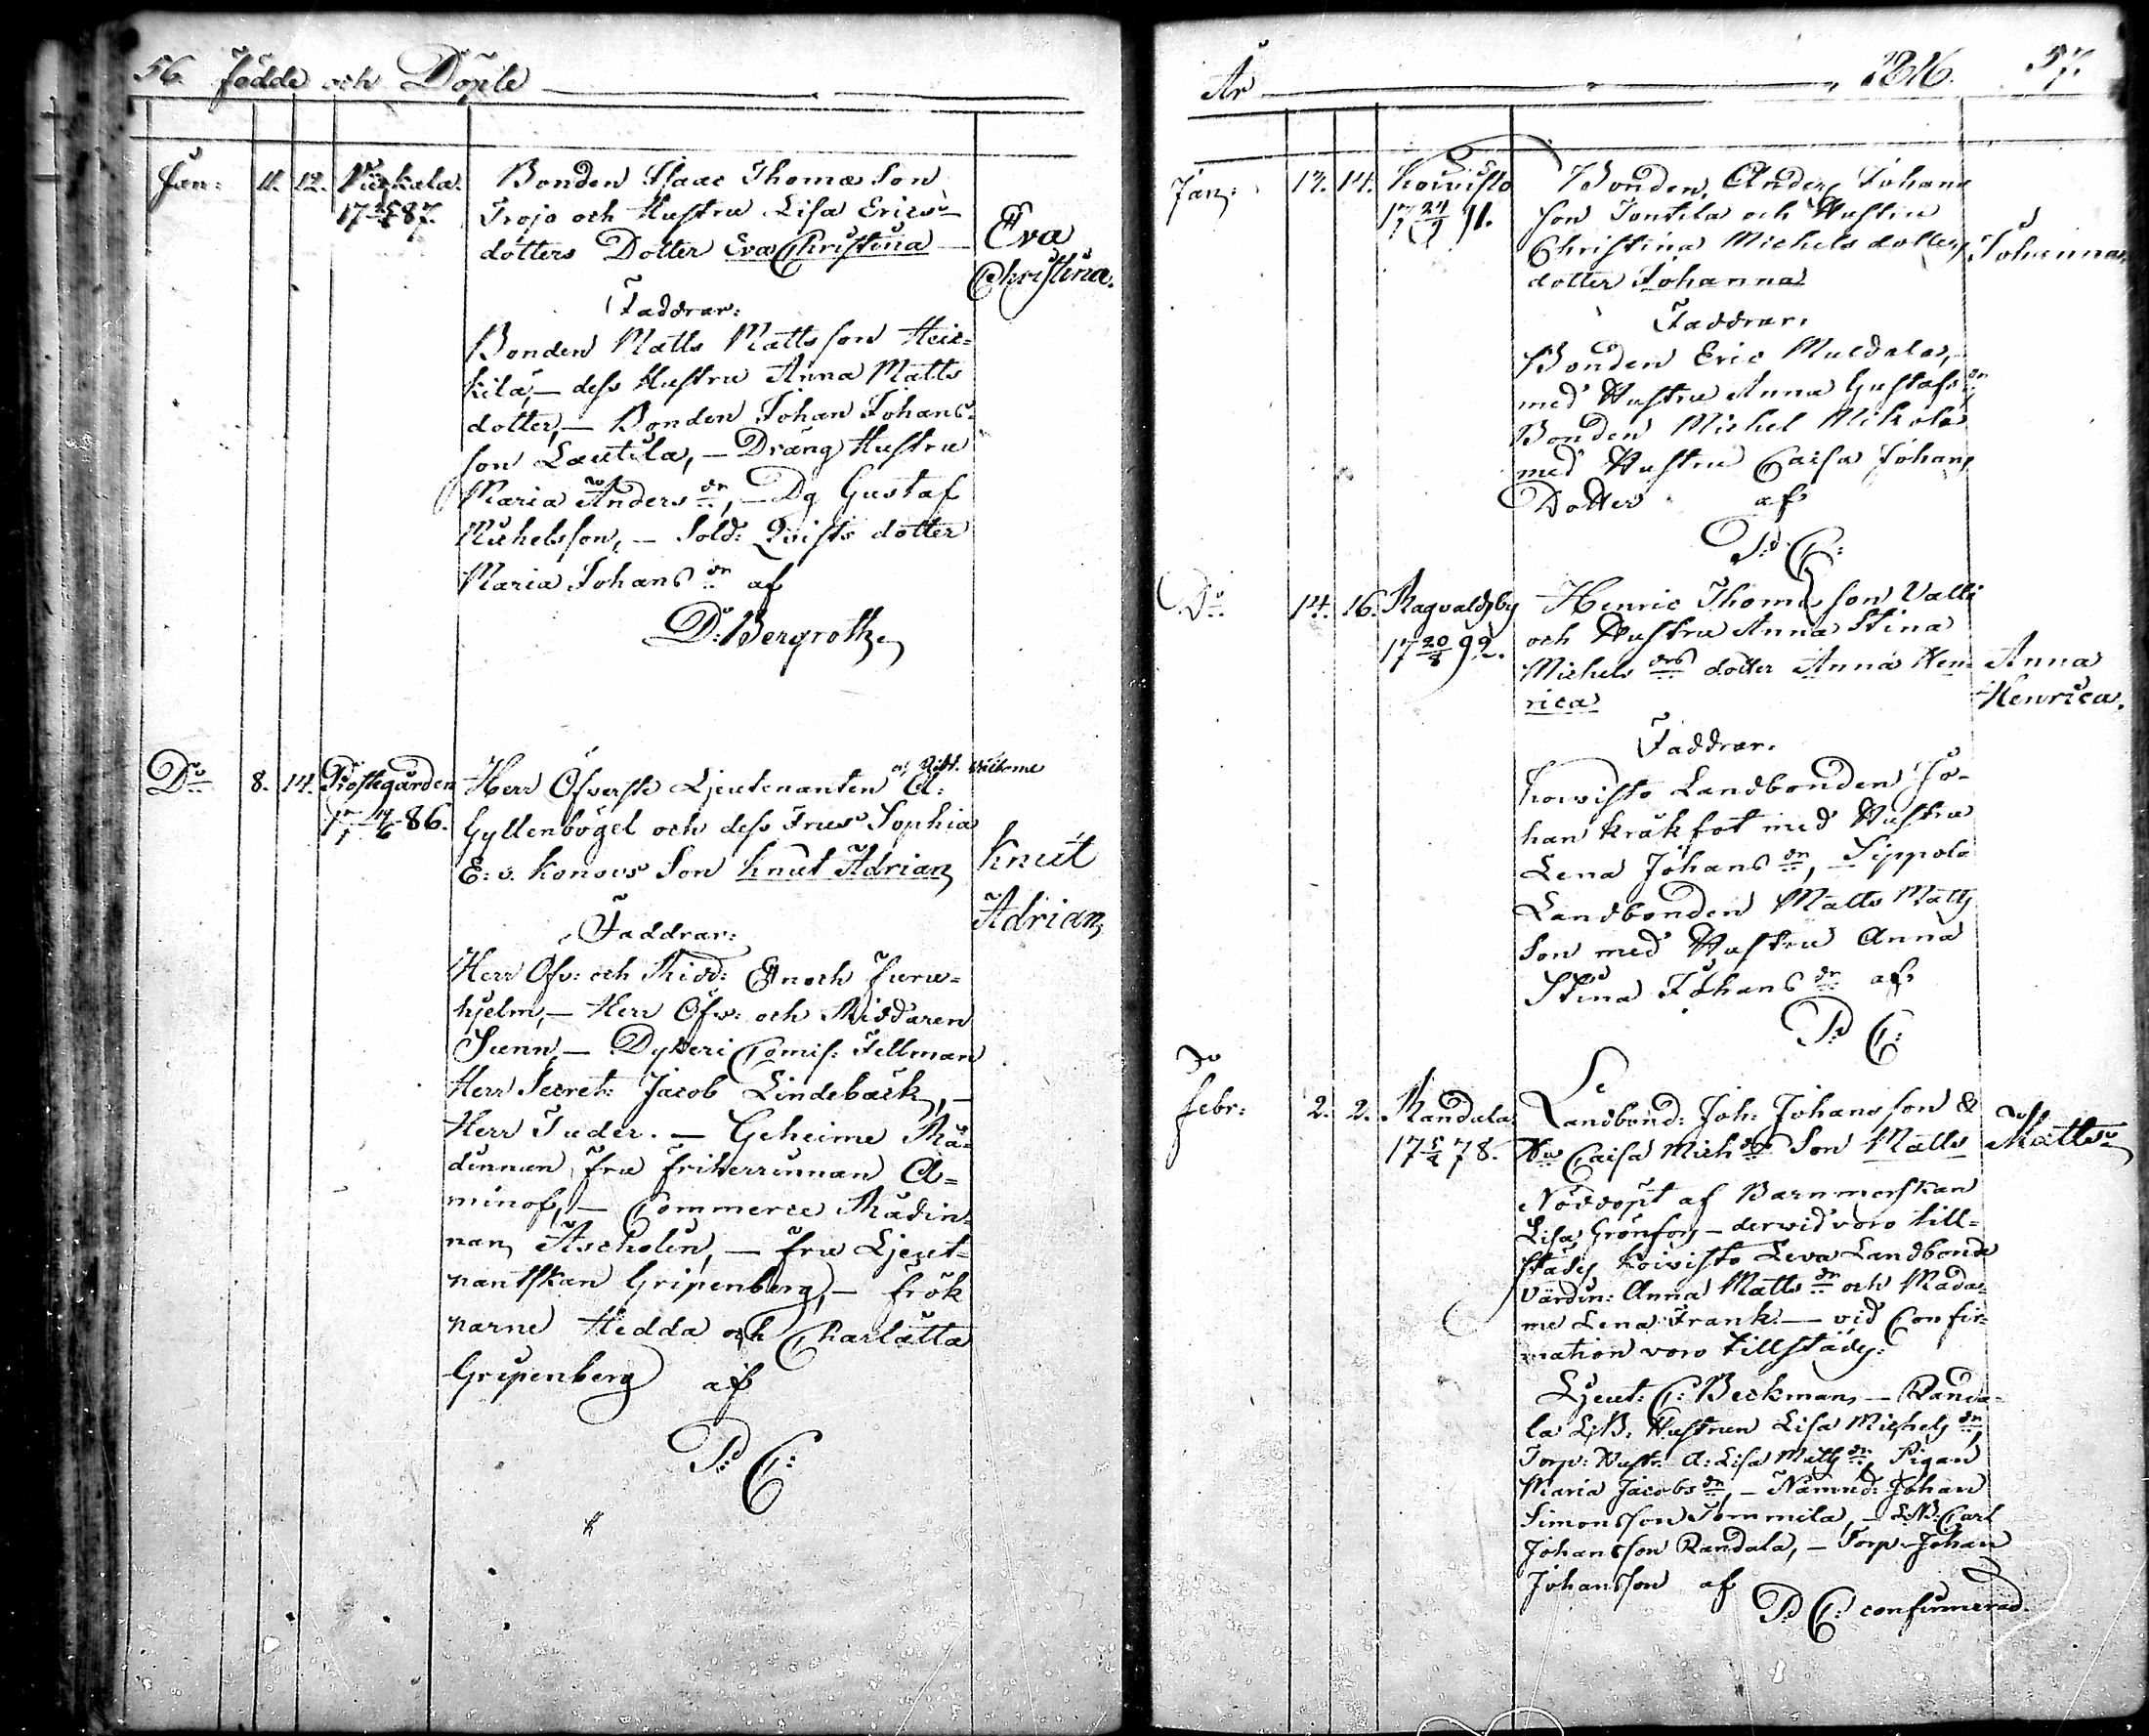 56. Födde och Döpte
Jan: 11. 12. Bonden Isaac Thomæ Son
17 87. Trojo och Hustru Lisa Erics
dotters Dotter Eva Christina Eva
Christina.
Faddrar:
Bonden Matts Mattsson Heic=
kilä, — dess Hustru Anna Matts
dotter, — Bonden Johan Johans=
son Lautila, — Dräng Hustru
Maria Anders dr, — Dg Gustaf
Michelsson, — Sold: Qvists dotter
Maria Johans dr af
D: Bergroth
Do 8. 14. Prostegården Herr Öfverste Ljeutenanten A:
17 14/6 86. Gyllenbögel och dess Frus Sophia
E: v. Konows Son Knut Adrian Knut
Adrian
Faddrar:
Herr Öfv: och Ridd: Enoch Furu=
hjelm, — Herr Öfv: och Riddaren
Sunn, — Dykeri Comiss: Fellman
Herr Secret: Jacob Lindebäck, —
Herr Tuder. — Geheime Rå=
dinnan, fru Friherrinnan A=
minof, — Commerce Rådin=
nan Ascholin, — fru Ljeut=
nantskan Gripenberg, — Frök
narne Hedda och Charlotta
Gripenberg af
P: C:
År 1816. 57.
Jan: 13. 14. Koivisto Bonden Anders Johans
17 24/9 91. son Jontila och Hustru
Christina Michels dotters Johanna
dotter Johanna
Faddrar.
Bonden Eric
med Hustru Anna Gustafs dr
Bonden Michel Mikola
med Hustru Caisa Johans
Dotter af
P: C:
Do 14. 16. Ragvaldsby Henric Thomæ son Valli
17 20/8 92. och Hustru Anna Stina
Michels drs dotter Anna Hen= Anna
rica Henrica.
Faddrar.
Koivisto Landbonden Jo=
han Kråkfot med Hustru
Lena Johans dr, — Sippola
Landbonden Matts Matts
son med Hustru Anna
Stina Johans dr af
P: C:
Febr: 2. 2. Randala Landbond: Joh: Johansson &
17 78. Hu Caisa Mich drs Son Matts Matts
Nöddöpt af Barnmorskan
Lisa Grönfors — dervid voro till=
städes Koivisto Leva Landbonde
värdin: Anna Matts dr och Mada=
me Lena Frank. — vid Confir=
mation voro tillstädes:
Ljeut: C: Beckman, — Randa=
la L.B. Hustrun Lisa Michels dr,
Torp: Hustr: A: Lisa Matts dr, Pigan
Maria Jacobs dr, — Nämnd: Johan
Simonsson Tommila, — L.B. Carl
Johansson Randala, — Torp. Johan
Johansson af
P: C: confirmerad.